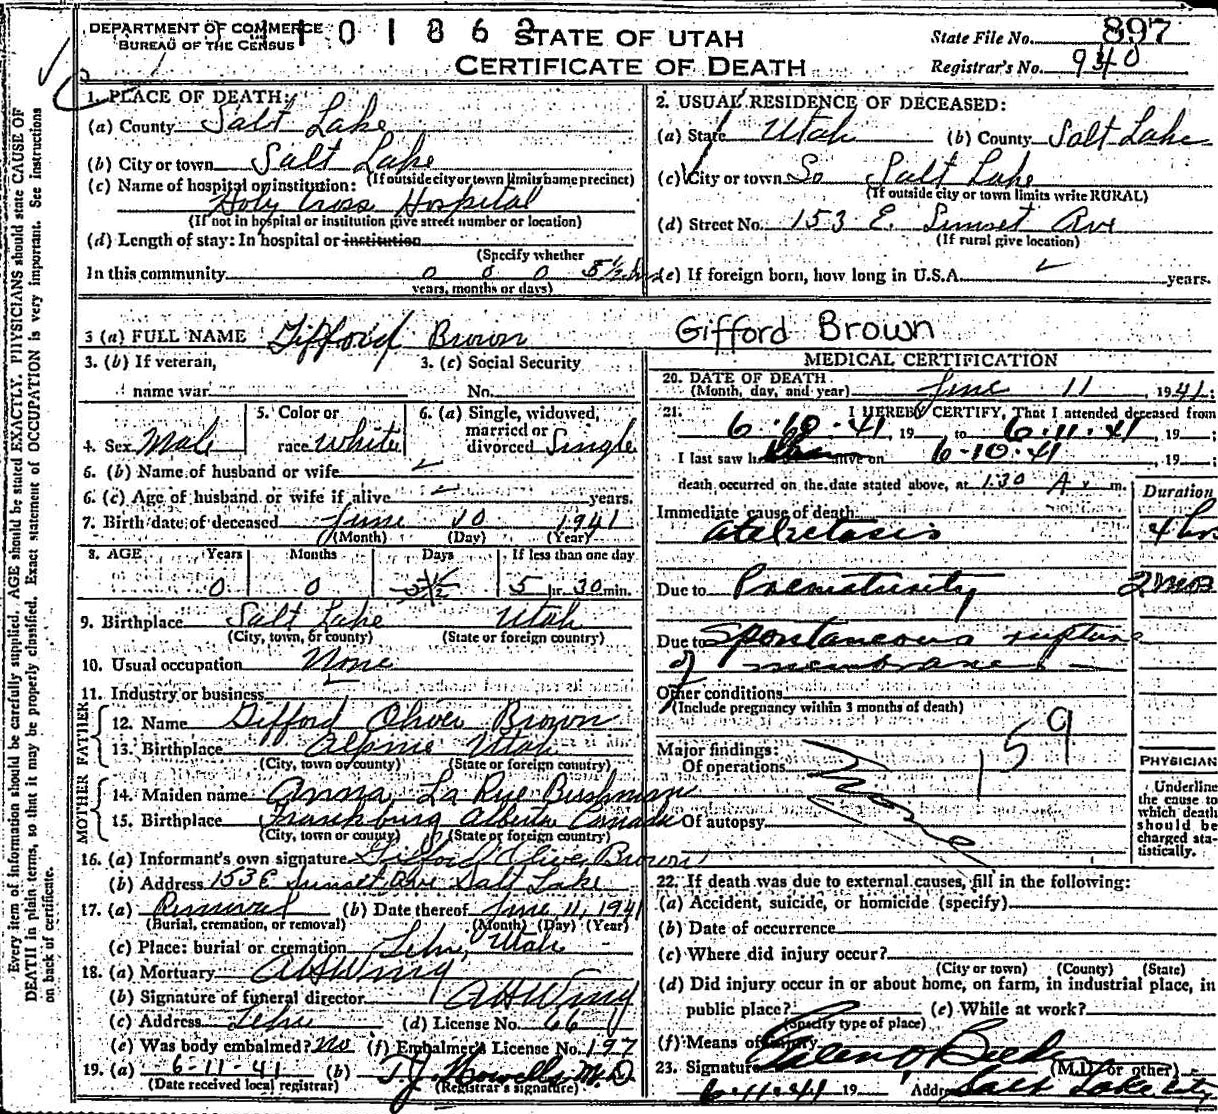 DEPARTMENT OF COMMERCE
BUREAU OF THE CENSUS
1101862
STATE OF UTAH
CERTIFICATE OF DEATH
State File No. 897
Registrar's No. 940
Every item of information should be carefully supplied. AGE should be stated EXACTLY. PHYSICIANS should state CAUSE OF
DEATH in plain terms, so that it may be properly classified. Exact statement of OCCUPATION is very important. See instructions
on back of certificate.
1. PLACE OF DEATH:
(a) County Salt Lake
(b) City or town Salt Lake
(If outside city or town limits name precinct)
(c) Name of hospital or institution:
Holy Cross Hospital
(If not in hospital or institution give street number or location)
(d) Length of stay: In hospital or institution
(Specify whether
In this community 0 0 0 5½ hrs
years, months or days)
2. USUAL RESIDENCE OF DECEASED:
(a) State Utah (b) County Salt Lake
(c) City or town So Salt Lake
(If outside city or town limits write RURAL)
(d) Street No. 153 E. Sunset Ave
(If rural give location)
(e) If foreign born, how long in U.S.A. years.
3 (a) FULL NAME Gifford Brown
Gifford Brown
3. (b) If veteran,
name war
3. (c) Social Security
No.
4. Sex Male
5. Color or
race white
6. (a) Single, widowed,
married or
divorced Single
6. (b) Name of husband or wife
6. (c) Age of husband or wife if alive years.
7. Birth date of deceased June 10 1941
(Month) (Day) (Year)
8. AGE Years Months Days If less than one day
0 0 5½ 5 hr. 30 min.
9. Birthplace Salt Lake Utah
(City, town, or county) (State or foreign country)
10. Usual occupation None
11. Industry or business
FATHER
12. Name Gifford Oliver Brown
13. Birthplace Alpine Utah
(City, town or county) (State or foreign country)
MOTHER
14. Maiden name Anna La Rue Bushman
15. Birthplace Alberta Canada
(City, town or county) (State or foreign country)
16. (a) Informant's own signature Gifford Oliver Brown
(b) Address 153 E Sunset Ave Salt Lake
17. (a) Removal (b) Date thereof June 11, 1941
(Burial, cremation, or removal) (Month) (Day) (Year)
(c) Place: burial or cremation Lehi, Utah
18. (a) Mortuary A H Wing
(b) Signature of funeral director A H Wing
(c) Address Lehi (d) License No. 66
(e) Was body embalmed? No (f) Embalmer's License No. 197
19. (a) 6-11-41 (b) T.J. Howells M.D.
(Date received local registrar) (Registrar's signature)
MEDICAL CERTIFICATION
20. DATE OF DEATH
(Month, day, and year) June 11, 1941:
21. I HEREBY CERTIFY, That I attended deceased from
6-10-41, 19 to 6-11-41, 19 :
I last saw h alive on 6-10-41, 19 ;
death occurred on the date stated above, at 1:30 A. m.
Duration
Immediate cause of death
atelectasis 4 hrs
Due to Prematurity 2 mos
Due to Spontaneous rupture
of membranes
Other conditions
(Include pregnancy within 3 months of death)
159
Major findings:
Of operations
Of autopsy
PHYSICIAN
Underline
the cause to
which death
should be
charged sta-
tistically.
22. If death was due to external causes, fill in the following:
(a) Accident, suicide, or homicide (specify)
(b) Date of occurrence
(c) Where did injury occur?
(City or town) (County) (State)
(d) Did injury occur in or about home, on farm, in industrial place, in
public place? (e) While at work?
(Specify type of place)
(f) Means of injury
23. Signature (M.D. or other)
6-11-41 19 Address Salt Lake City